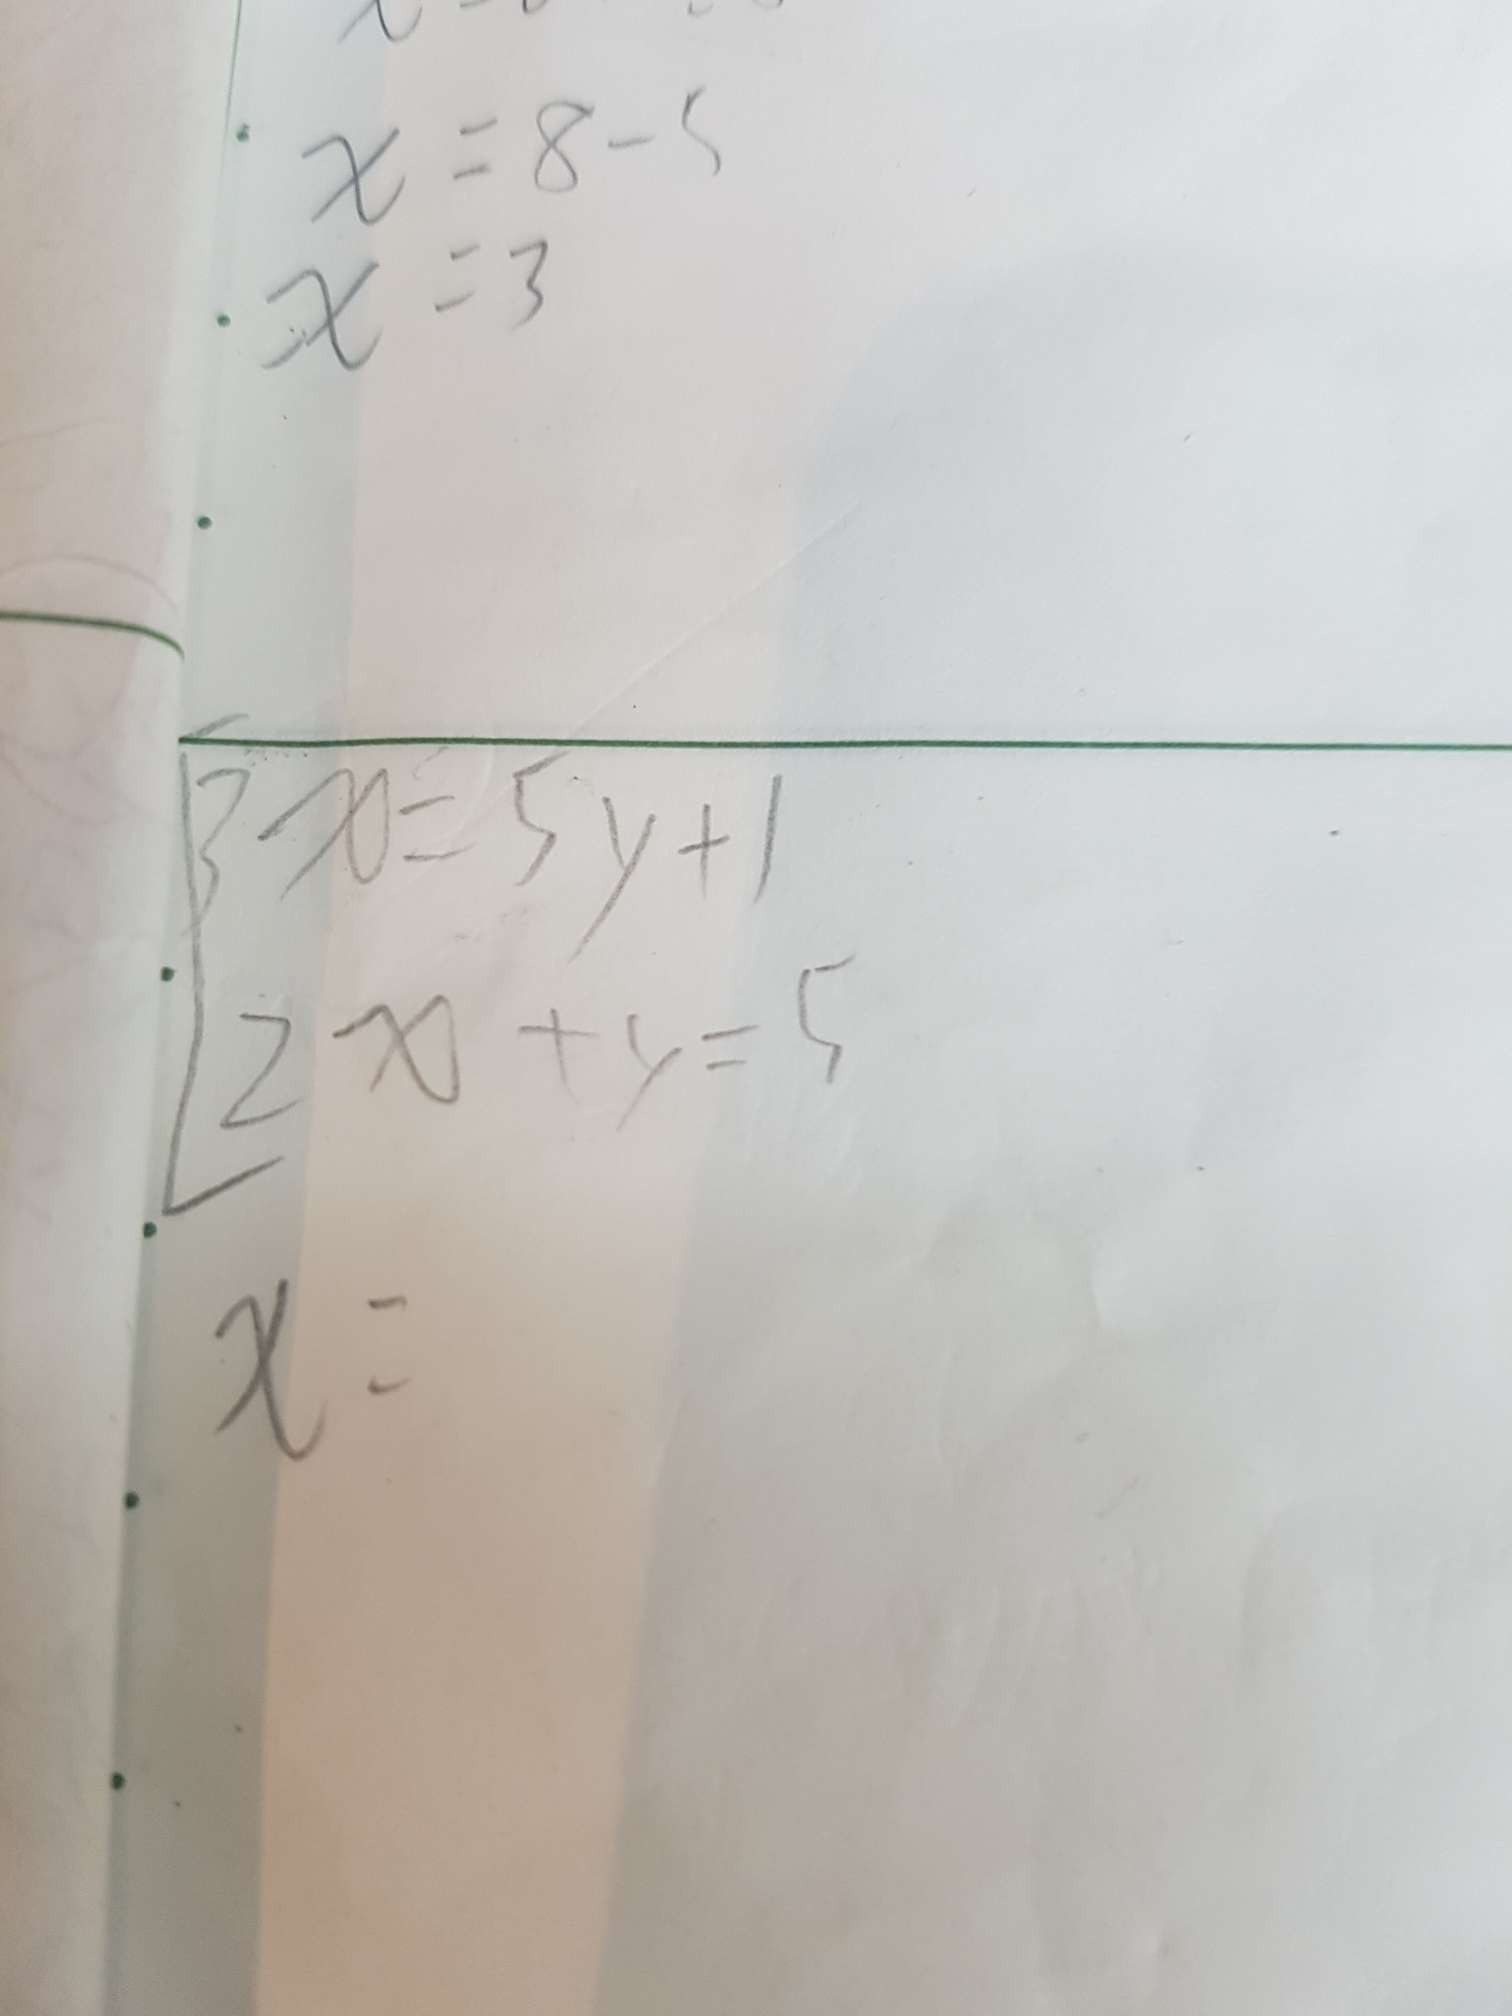 x = 8 - 5
x = 3
3x = 5y + 1
2x + y = 5
x =